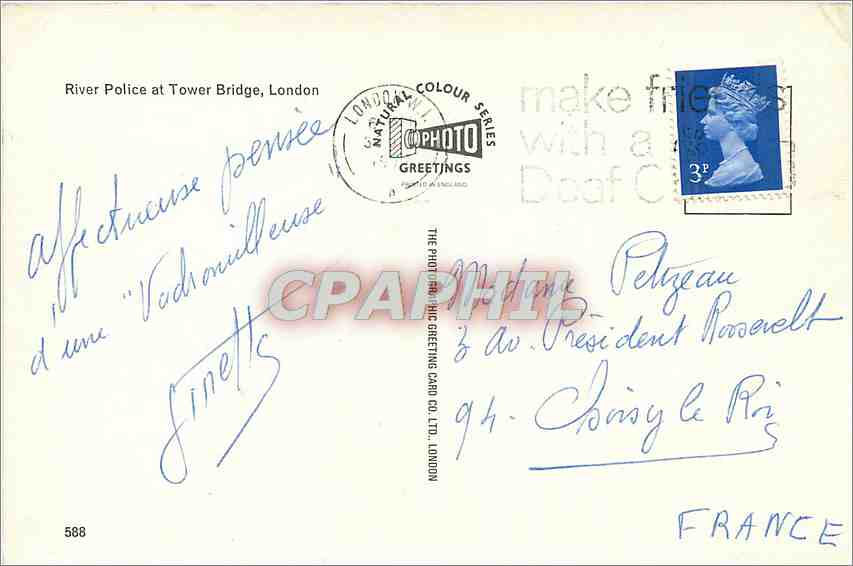 River Police at Tower Bridge, London
LONDON W.1.
NATURAL COLOUR SERIES
PHOTO
GREETINGS
PRINTED IN ENGLAND
make friends
with a
Deaf C
3P
affectueuse pensée
d'une "Vadrouilleuse
Ginette
THE PHOTOGRAPHIC GREETING CARD CO. LTD., LONDON
CPAPHIL
Madame Petizeau
3 Av. Président Roosevelt
94 - Choisy le Roi
FRANCE
588